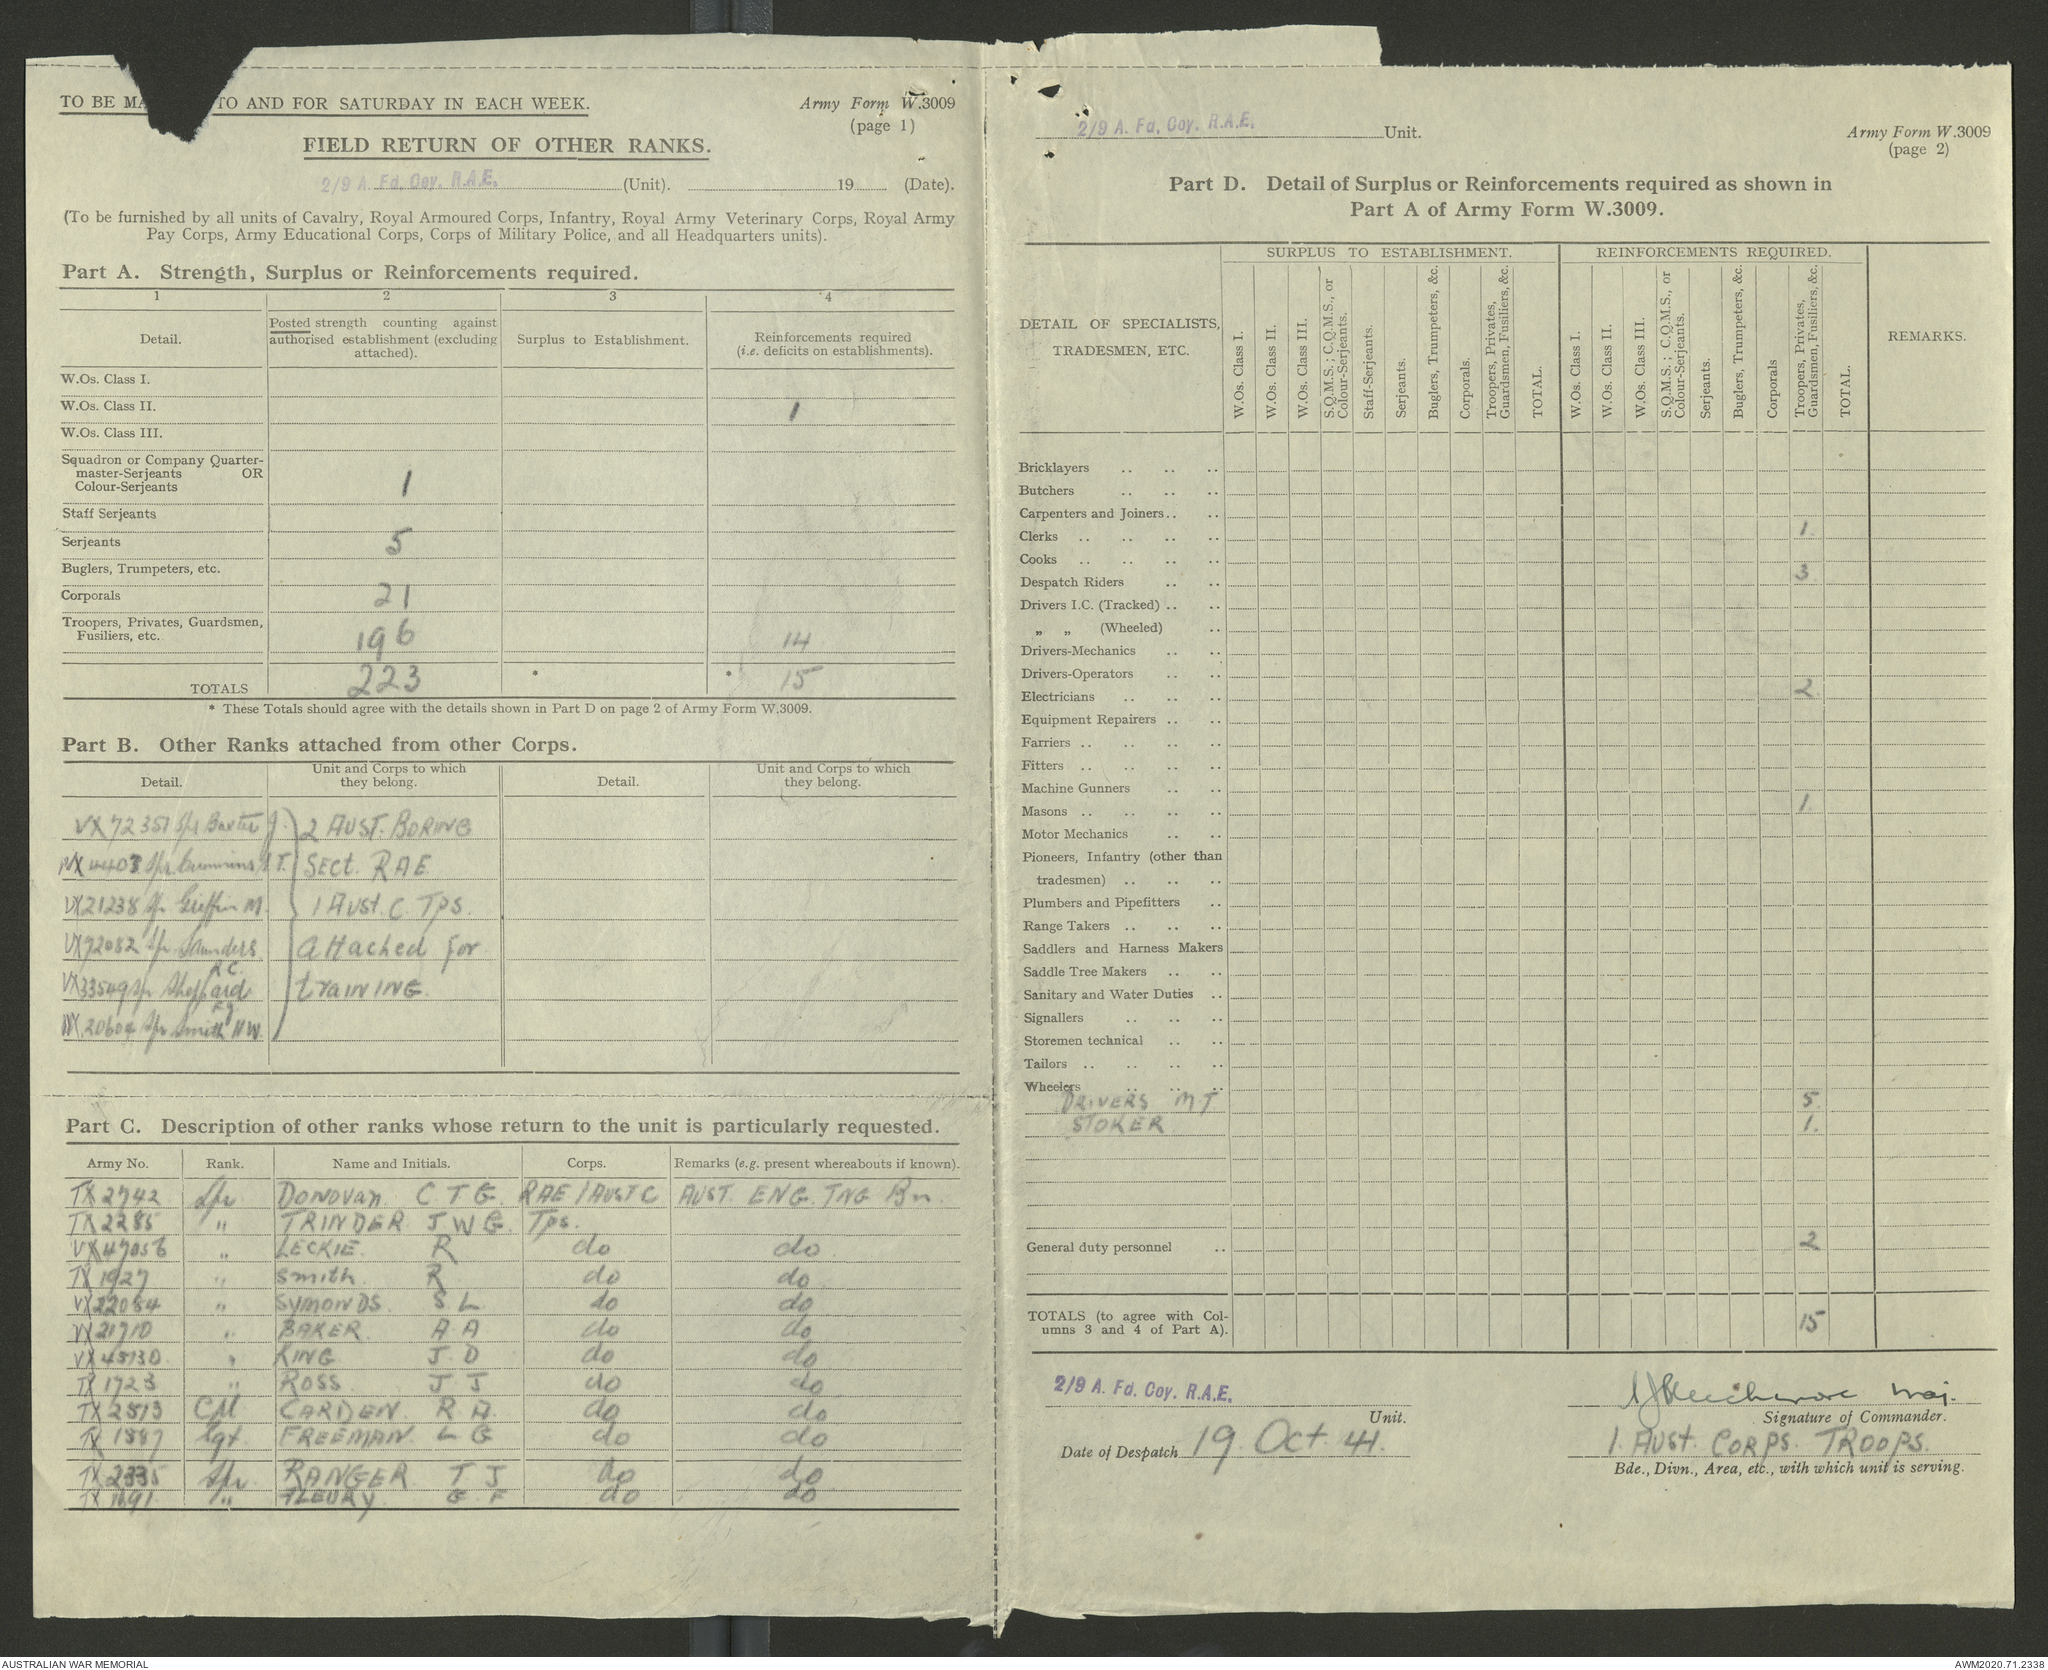 TO BE MA TO AND FOR SATURDAY IN EACH WEEK.
Army Form W.3009
(page 1)
FIELD RETURN OF OTHER RANKS.
2/9 A. Fd. Coy. R.A.E. (Unit). 19 (Date).
(To be furnished by all units of Cavalry, Royal Armoured Corps, Infantry, Royal Army Veterinary Corps, Royal Army
Pay Corps, Army Educational Corps, Corps of Military Police, and all Headquarters units).
Part A. Strength, Surplus or Reinforcements required.
1 2 3 4
Detail.
Posted strength counting against
authorised establishment (excluding
attached).
Surplus to Establishment.
Reinforcements required
(i.e. deficits on establishments).
W.Os. Class I.
W.Os. Class II. 1
W.Os. Class III.
Squadron or Company Quarter-
master-Serjeants OR
Colour-Serjeants 1
Staff Serjeants
Serjeants 5
Buglers, Trumpeters, etc.
Corporals 21
Troopers, Privates, Guardsmen,
Fusiliers, etc. 196 14
TOTALS 223 * * 15
* These Totals should agree with the details shown in Part D on page 2 of Army Form W.3009.
Part B. Other Ranks attached from other Corps.
Detail.
Unit and Corps to which
they belong.
Detail.
Unit and Corps to which
they belong.
VX72351 Spr Baxter J. 2 AUST. BORING
4403 Spr Cummins T. SECT. RAE
VX21238 Spr Griffin M. 1 AUST. C. TPS.
VX72082 Spr Saunders R C attached for
VX33549 Spr Sheppard training.
20604 Spr Smith N W.
Part C. Description of other ranks whose return to the unit is particularly requested.
Army No. Rank. Name and Initials. Corps. Remarks (e.g. present whereabouts if known).
TX 2742 Spr DONOVAN C T G RAE 1 AUST C AUST. ENG. TNG Bn.
TX 2285 " TRINDER J W G. Tps.
VX 47056 " LECKIE. R do do
TX 1927 " Smith. R do do
VX 22084 " SYMONDS. S L do do
VX 21710 " BAKER. A A do do
VX 45130 " KING J. D do do
TX 1723 " ROSS J J do do
TX 2513 Cpl CARDEN. R A. do do
TX 1887 Sgt. FREEMAN. L G do do
TX 2335 Spr. RANGER T J do do
TX 1691 " FLEURY G F do do
2/9 A. Fd. Coy. R.A.E. Unit.
Army Form W.3009
(page 2)
Part D. Detail of Surplus or Reinforcements required as shown in
Part A of Army Form W.3009.
DETAIL OF SPECIALISTS,
TRADESMEN, ETC.
SURPLUS TO ESTABLISHMENT.
W.Os. Class I.
W.Os. Class II.
W.Os. Class III.
S.Q.M.S.; C.Q.M.S., or
Colour-Serjeants.
Staff-Serjeants.
Serjeants.
Buglers, Trumpeters, &c.
Corporals.
Troopers, Privates,
Guardsmen, Fusiliers, &c.
TOTAL.
REINFORCEMENTS REQUIRED.
W.Os. Class I.
W.Os. Class II.
W.Os. Class III.
S.Q.M.S.; C.Q.M.S., or
Colour-Serjeants.
Serjeants.
Buglers, Trumpeters, &c.
Corporals
Troopers, Privates,
Guardsmen, Fusiliers, &c.
TOTAL.
REMARKS.
Bricklayers .. .. ..
Butchers .. .. ..
Carpenters and Joiners .. ..
Clerks .. .. .. .. 1.
Cooks .. .. .. ..
Despatch Riders .. .. 3
Drivers I.C. (Tracked) .. ..
„ „ (Wheeled) ..
Drivers-Mechanics .. ..
Drivers-Operators .. ..
Electricians .. .. .. 2
Equipment Repairers .. ..
Farriers .. .. .. ..
Fitters .. .. .. ..
Machine Gunners .. ..
Masons .. .. .. .. 1.
Motor Mechanics .. ..
Pioneers, Infantry (other than
tradesmen) .. .. ..
Plumbers and Pipefitters ..
Range Takers .. .. ..
Saddlers and Harness Makers
Saddle Tree Makers .. ..
Sanitary and Water Duties ..
Signallers .. .. ..
Storemen technical .. ..
Tailors .. .. .. ..
Wheelers .. .. ..
DRIVERS M T 5.
STOKER 1.
General duty personnel .. 2
TOTALS (to agree with Col-
umns 3 and 4 of Part A). 15
2/9 A. Fd. Coy. R.A.E.
Unit.
Maj.
Signature of Commander.
Date of Despatch 19. Oct. 41.
1. AUST. CORPS. TROOPS.
Bde., Divn., Area, etc., with which unit is serving.
AUSTRALIAN WAR MEMORIAL
AWM2020.71.2338